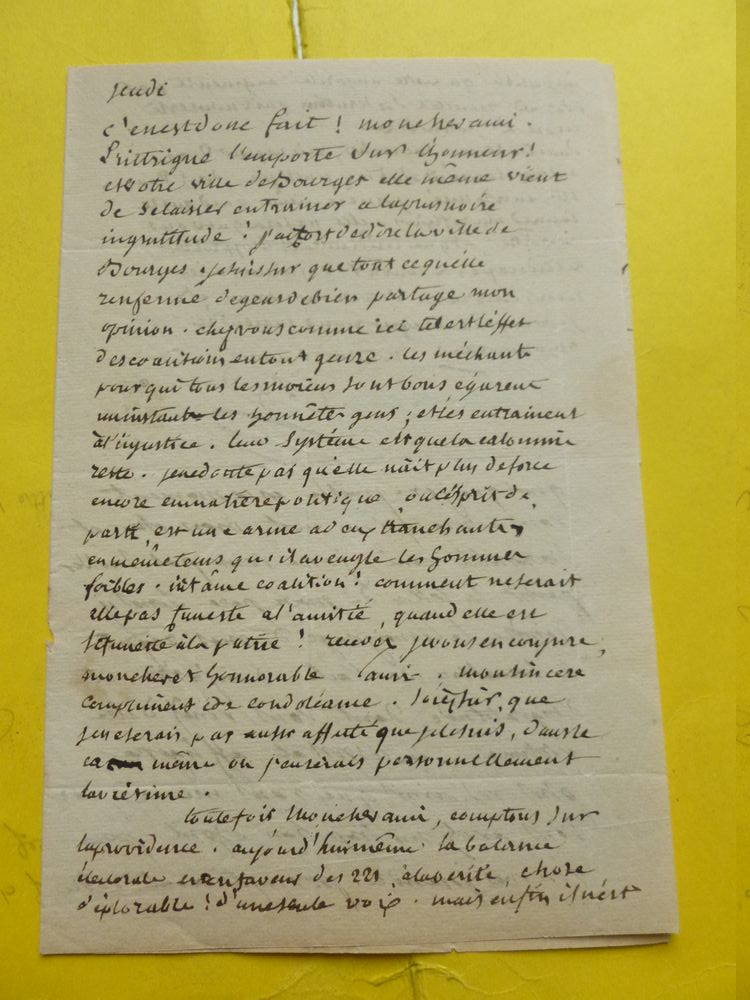 jeudi
c'en est donc fait ! mon cher ami.
l'intrigue l'emporte sur l'honneur !
et votre ville de Bourges elle même vient
de se laisser entrainer a la plus noire
ingratitude ! j'ai tort de dire la ville de
Bourges. je suis sur que tout ce qu'elle
renferme de gens de bien partage mon
opinion. chez vous comme ici tel est l'effet
des coalitions en tout genre. les méchants
pour qui tous les moiens sont bons égarent
un instant les honnêtes gens ; et les entrainent
à l'injustice. leur système est que la calomnie
reste. je ne doute pas qu'elle n'ait plus de force
encore en matière politique, où l'esprit de
parti, est une arme a deux tranchants,
en même tems qu'il aveugle les hommes
foibles. infâme coalition ! comment ne serait
elle pas funeste a l'amitié, quand elle est
si funeste à la patrie ! recevez je vous en conjure,
mon cher et honnorable ami. mon sincere
compliment de condoléance. soiés sûr, que
je ne serais pas aussi affecté que je le suis, dans le
cas même ou j'en serais personnellement
la victime.
toutefois mon cher ami, comptons sur
la providence. aujourd'hui même la balance
électorale est en faveur des 221, à la vérité, chose
déplorable ! d'une seule voix. mais enfin il n'est